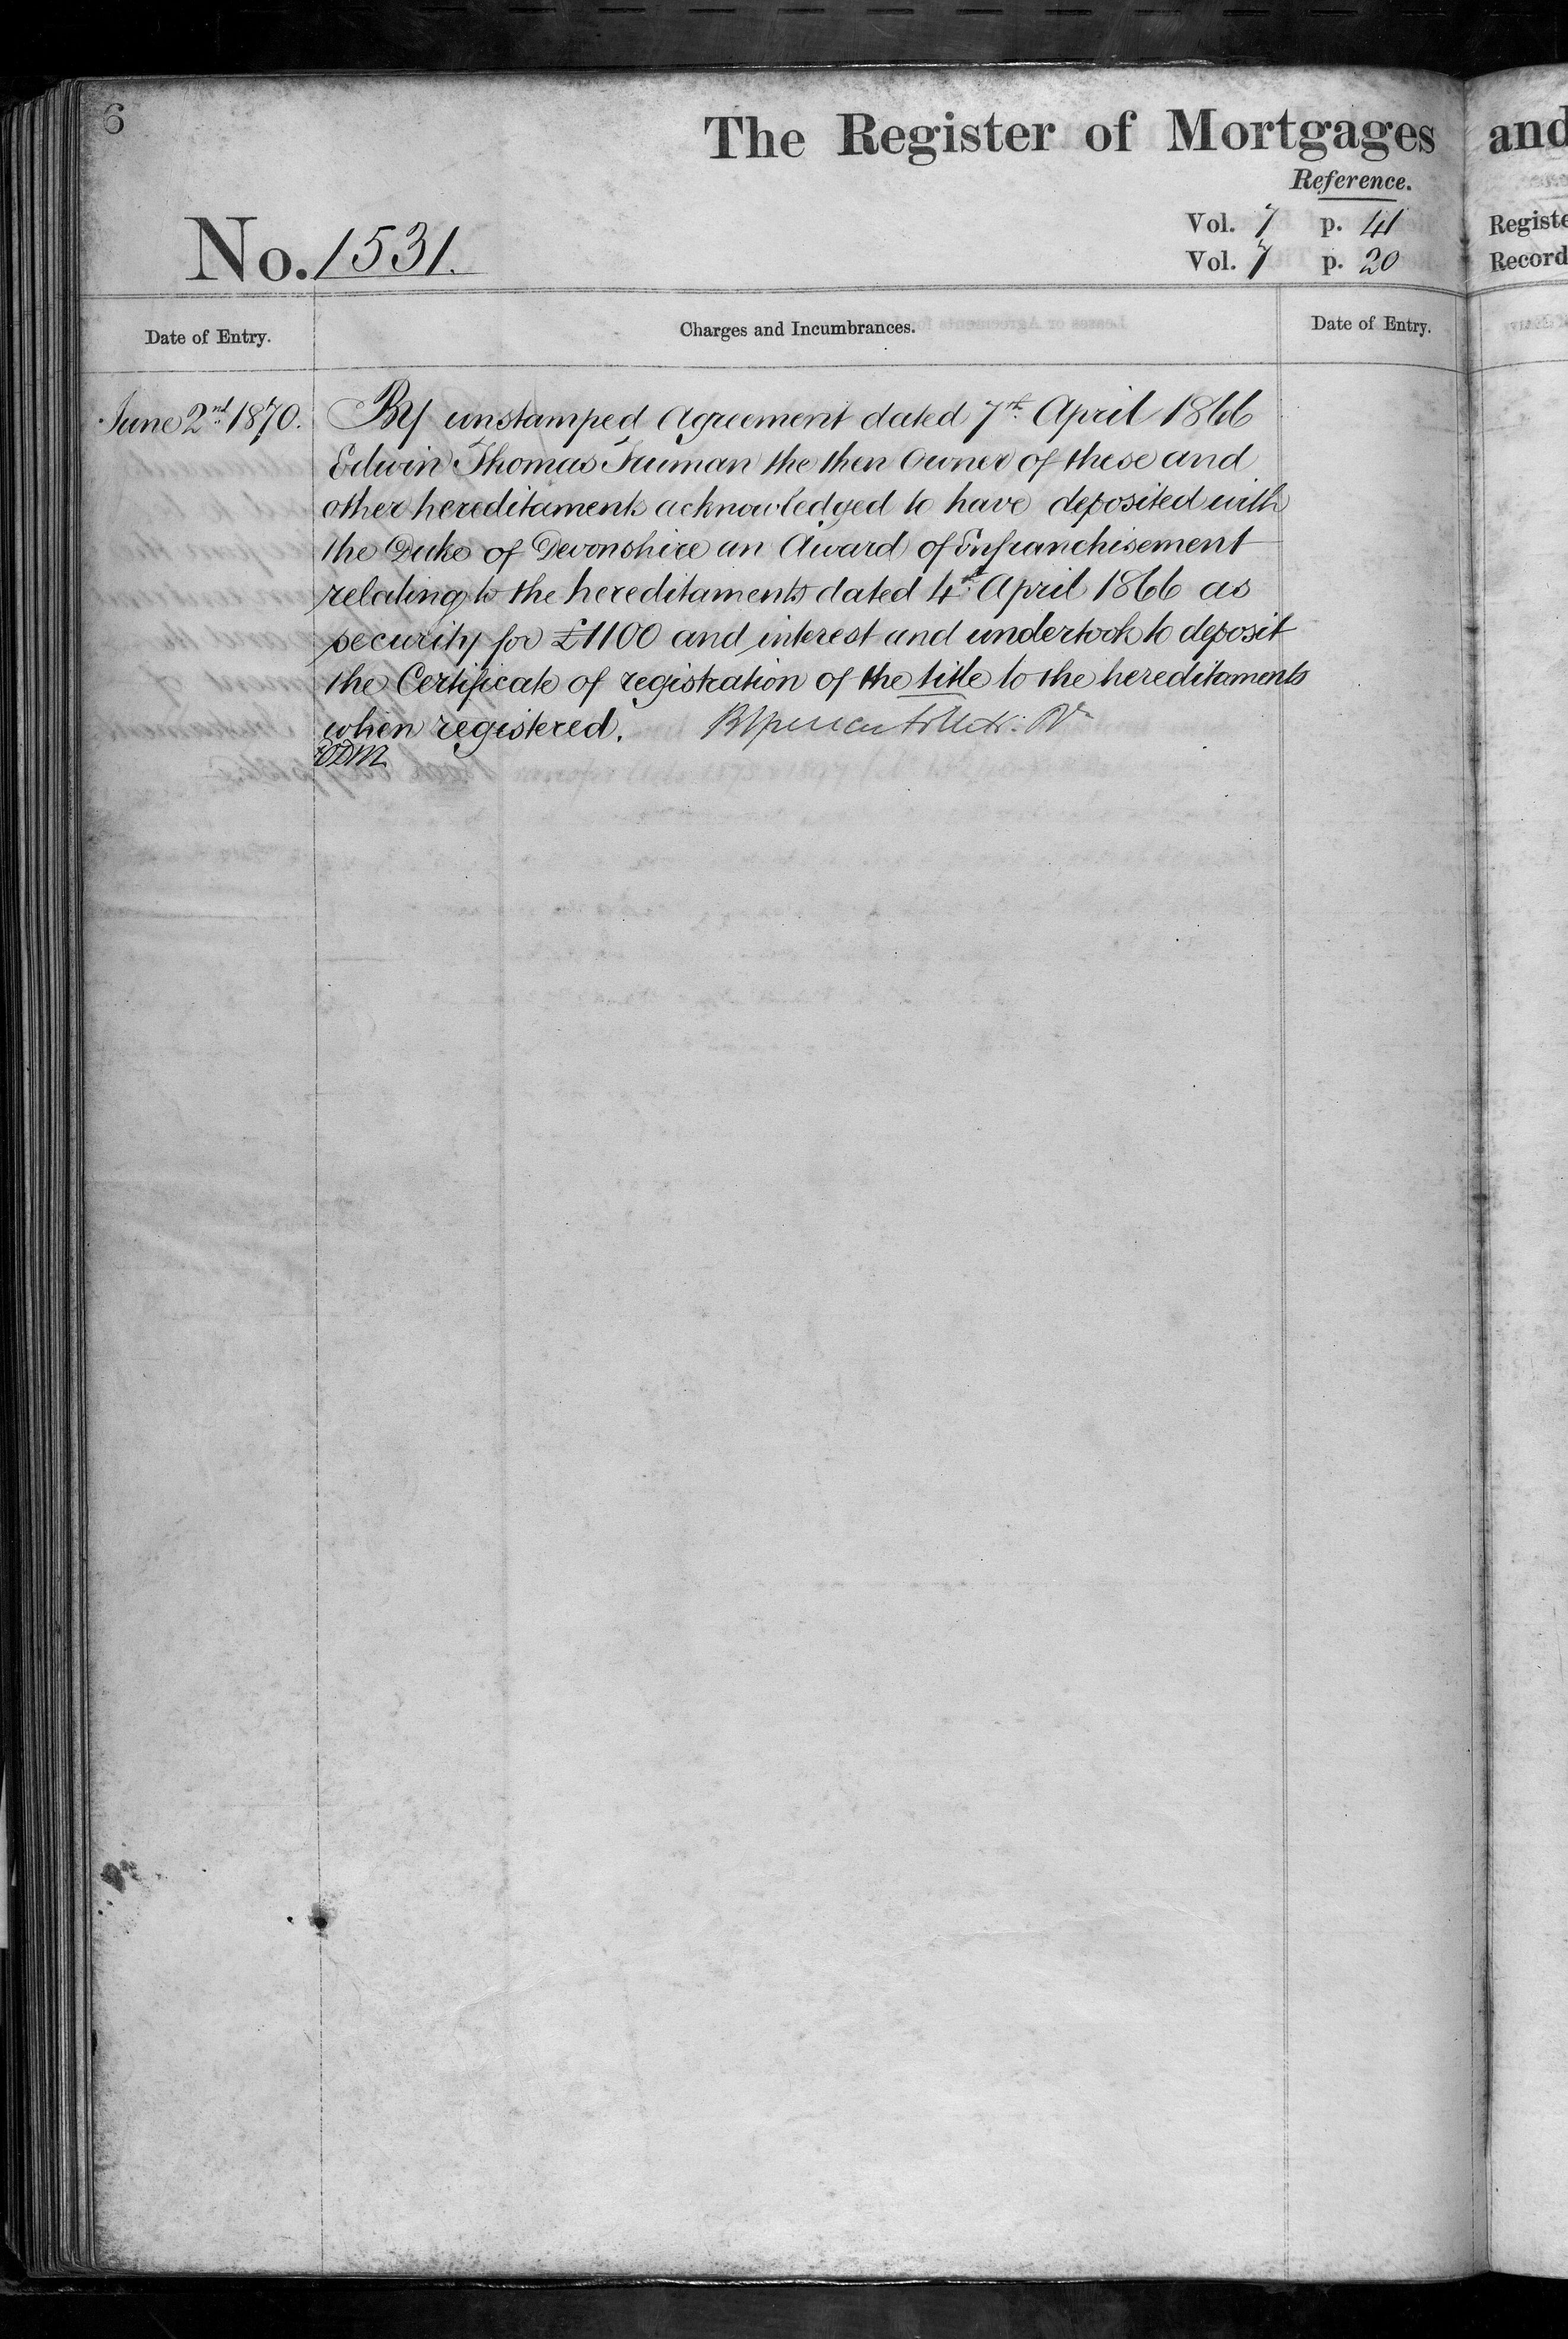 6
The Register of Mortgages and
Reference.
Vol. 7 p. 41 Registe
No. 1531. Vol. 7 p. 20 Record
Date of Entry. Charges and Incumbrances. Date of Entry.
June 2nd 1870. By unstamped Agreement dated 7th April 1866
Edwin Thomas Truman the then Owner of these and
other hereditaments acknowledged to have deposited with
the Duke of Devonshire an Award of Enfranchisement
relating to the hereditaments dated 4th April 1866 as
security for £1100 and interest and undertook to deposit
the Certificate of registration of the title to the hereditaments
when registered.